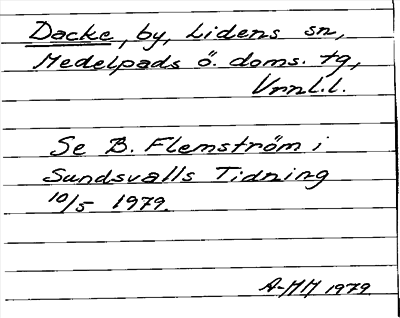 Dacke, by, Lidens sn,
Medelpads ö. doms. tg,
Vrnl.l.
Se B. Flemström i
Sundsvalls Tidning
10/5 1979.
A-MM 1979